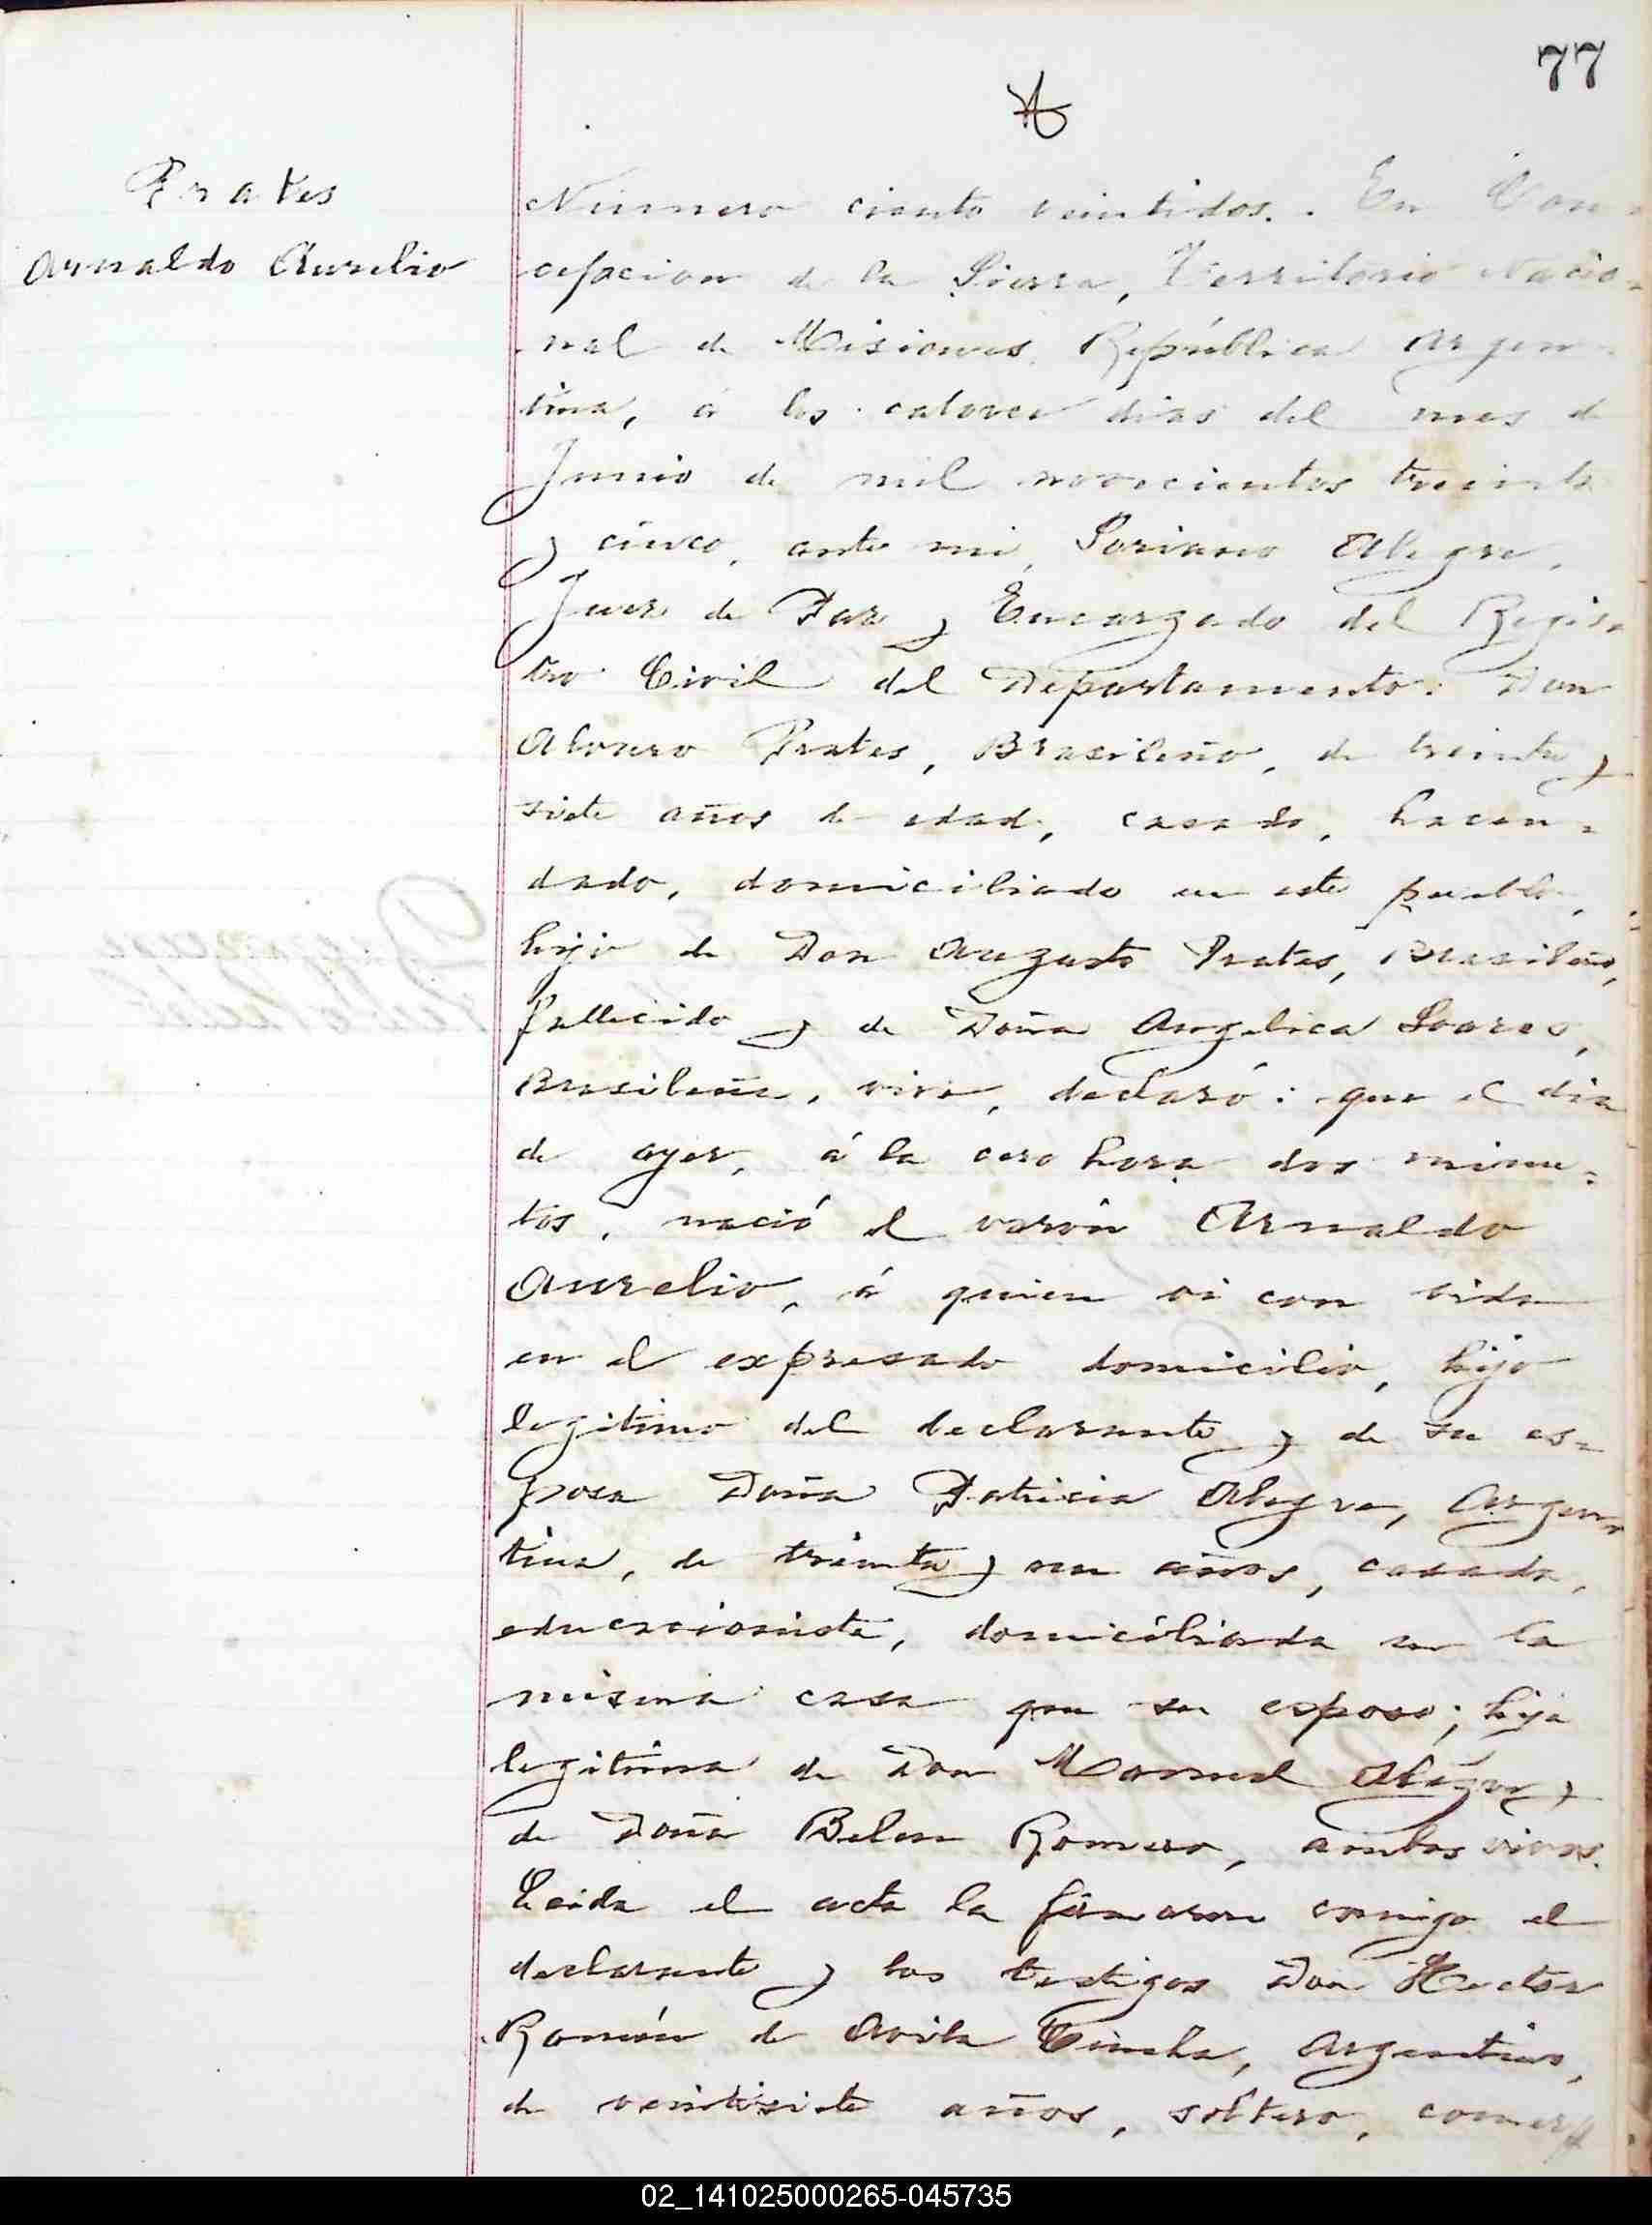 77
Prates
Arnaldo Aurelio
Número ciento veintidos. En Con-
cepcion de la Sierra, Territorio Nacio-
nal de Misiones, República Argen-
tina, á los catorce dias del mes de
Junio de mil novecientos treinta
y cinco, ante mi, Soriano Alegre,
Juez de Paz y Encargado del Regis-
tro Civil del Departamento: Don
Prates, Brasileño, de treinta y
siete años de edad, casado, hacen-
dado, domiciliado en este pueblo,
hijo de Don Augusto Prates, Brasileño,
fallecido y de Doña Angelica Soares,
Brasileña, viva, declaró: que el dia
de ayer, á la cero hora dos minu-
tos, nació el varón Arnaldo
Aurelio, á quien vi con vida
en el expresado domicilio, hijo
legitimo del declarante y de su es-
posa Doña Patricia Alegre, Argen-
tina, de treinta y un años, casada,
educacionista, domiciliada en la
misma casa que su esposo; hija
legitima de Don Manuel Alegre y
de Doña Belen Romero, ambos vivos.
Leida el acta la firmaron conmigo el
declarante y los testigos Don Hector
Ramón de Avila, Argentino,
de veintisiete años, soltero,
02_141025000265-045735